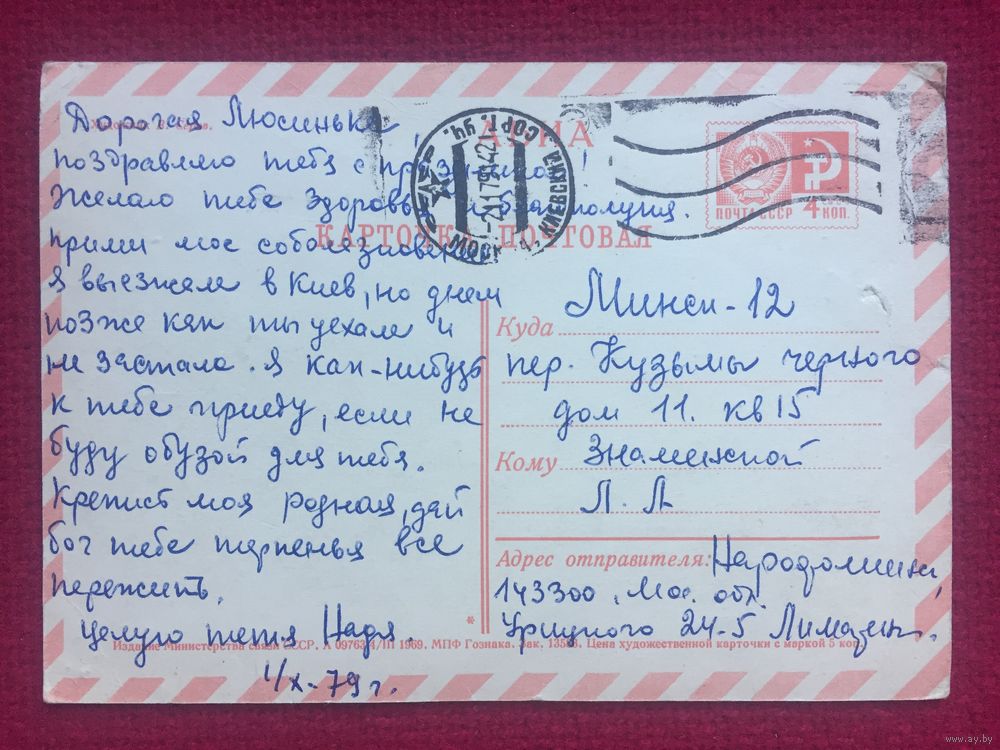 Дорогая Люсинька,
поздравляю тебя с праздником!
Желаю тебе здоровья и благополучия.
прими мое соболезнование
я выезжала в Киев, но днем
позже как ты уехала и
не застала. я как-нибудь
к тебе приеду, если не
буду обузой для тебя.
Крепись моя родная, дай
бог тебе терпенья все
пережить.
целую тетя Надя.
1/X-79 г.
АВИА
КАРТОЧКА ПОЧТОВАЯ
МОСКВА, КИЕВСКИЙ СОРТ. УЧ.
ПОЧТА СССР 4 КОП.
Куда Минск-12
пер. Кузьмы черного
дом 11. кв 15
Кому
Л. Л
Адрес отправителя: Нарофоминск
143300, Мос. обл.
Урицкого 24-5
Издание Министерства связи СССР. А 09763 4/III 1969. МПФ Гознака. Зак. Цена художественной карточки с маркой 5 коп.
www.ay.by